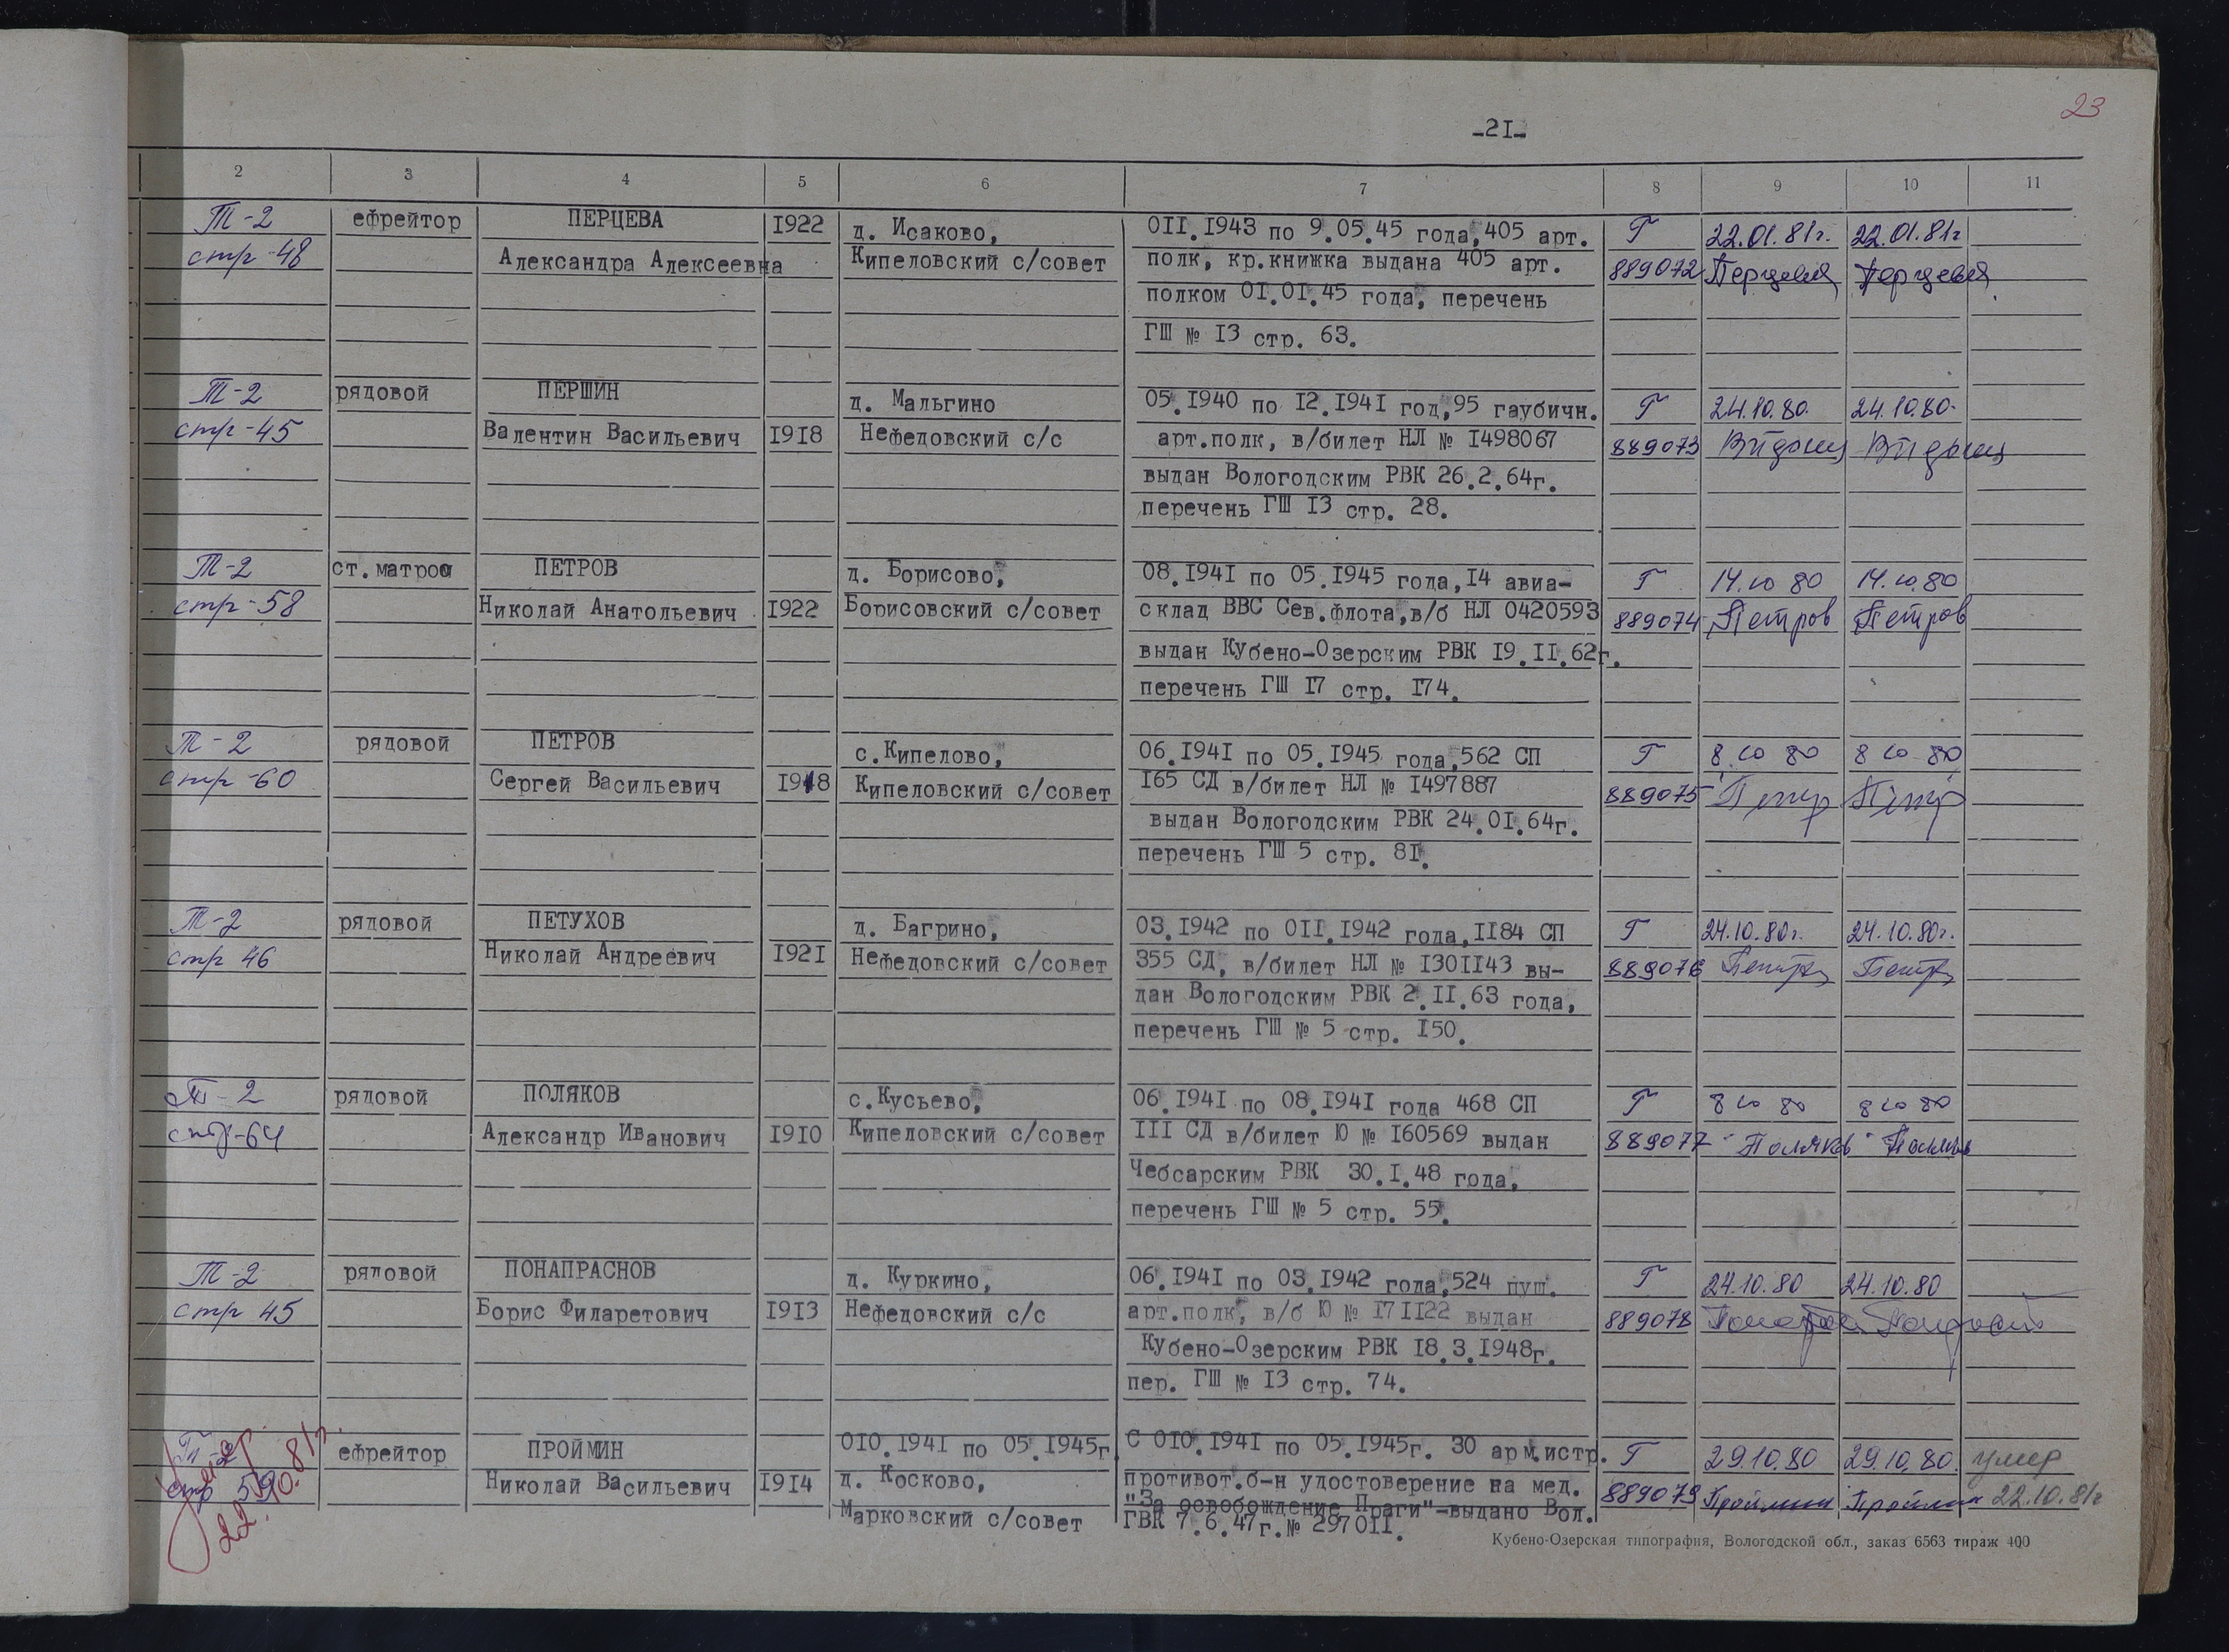 23
-2I-
2 3 4 5 6 7 8 9 10 11
Т-2 ефрейтор ПЕРЦЕВА I922 д. Исаково, 0II.I943 по 9.05.45 года,405 арт. Г 22.01.81г. 22.01.81г
стр-48 Александра Алексеевна Кипеловский с/совет полк, кр.книжка выдана 405 арт. 889072 Перцева Перцева
полком 0I.0I.45 года, перечень
ГШ № I3 стр. 63.
Т-2 рядовой ПЕРШИН д. Мальгино 05.I940 по I2.I94I год,95 гаубичн. Г 24.10.80. 24.10.80.
стр-45 Валентин Васильевич I9I8 Нефедовский с/с арт.полк, в/билет НЛ № I498067 889073
выдан Вологодским РВК 26.2.64г.
перечень ГШ I3 стр. 28.
Т-2 ст.матрос ПЕТРОВ д. Борисово, 08.I94I по 05.I945 года,I4 авиа- Г 14.10 80 14.10.80
стр-58 Николай Анатольевич I922 Борисовский с/совет склад ВВС Сев.флота,в/б НЛ 0420593 889074 Петров Петров
выдан Кубено-Озерским РВК I9.II.62г.
перечень ГШ I7 стр. I74.
Т-2 рядовой ПЕТРОВ с.Кипелово, 06.I94I по 05.I945 года,562 СП Г 8.10 80 8 10 80
стр-60 Сергей Васильевич I918 Кипеловский с/совет I65 СД в/билет НЛ № I497887 889075 Петр Петр
выдан Вологодским РВК 24.0I.64г.
перечень ГШ 5 стр. 8I.
Т-2 рядовой ПЕТУХОВ д. Багрино, 03.I942 по 0II.I942 года,II84 СП Г 24.10.80г. 24.10.80г.
стр 46 Николай Андреевич I92I Нефедовский с/совет 355 СД, в/билет НЛ № I30II43 вы- 889076
дан Вологодским РВК 2.II.63 года,
перечень ГШ № 5 стр. I50.
Т-2 рядовой ПОЛЯКОВ с.Кусьево, 06.I94I по 08.I94I года 468 СП Г 8 10 80 8 10 80
стр-64 Александр Иванович I9I0 Кипеловский с/совет III СД в/билет Ю № I60569 выдан 889077 Поляков Поляков
Чебсарским РВК 30.I.48 года,
перечень ГШ № 5 стр. 55.
Т-2 рядовой ПОНАПРАСНОВ д. Куркино, 06.I94I по 03.I942 года,524 пуш. Г 24.10.80 24.10.80
стр 45 Борис Филаретович I9I3 Нефедовский с/с арт.полк, в/б Ю № I7II22 выдан 889078
Кубено-Озерским РВК I8.3.I948г.
пер. ГШ № I3 стр. 74.
Т-2 ефрейтор ПРОЙМИН 0I0.I94I по 05.I945г. С 0I0.I94I по 05.I945г. 30 арм.истр. Г 29.10.80 29.10.80. умер
стр 59 Николай Васильевич I9I4 д. Косково, противот.б-н удостоверение на мед. 889079 Проймин Проймин 22.10.81г
умер 22.10.81г.
"За освобождение Праги"-выдано Вол.
Марковский с/совет ГВК 7.6.47г.№ 2970II.
Кубено-Озерская типография, Вологодской обл., заказ 6563 тираж 400